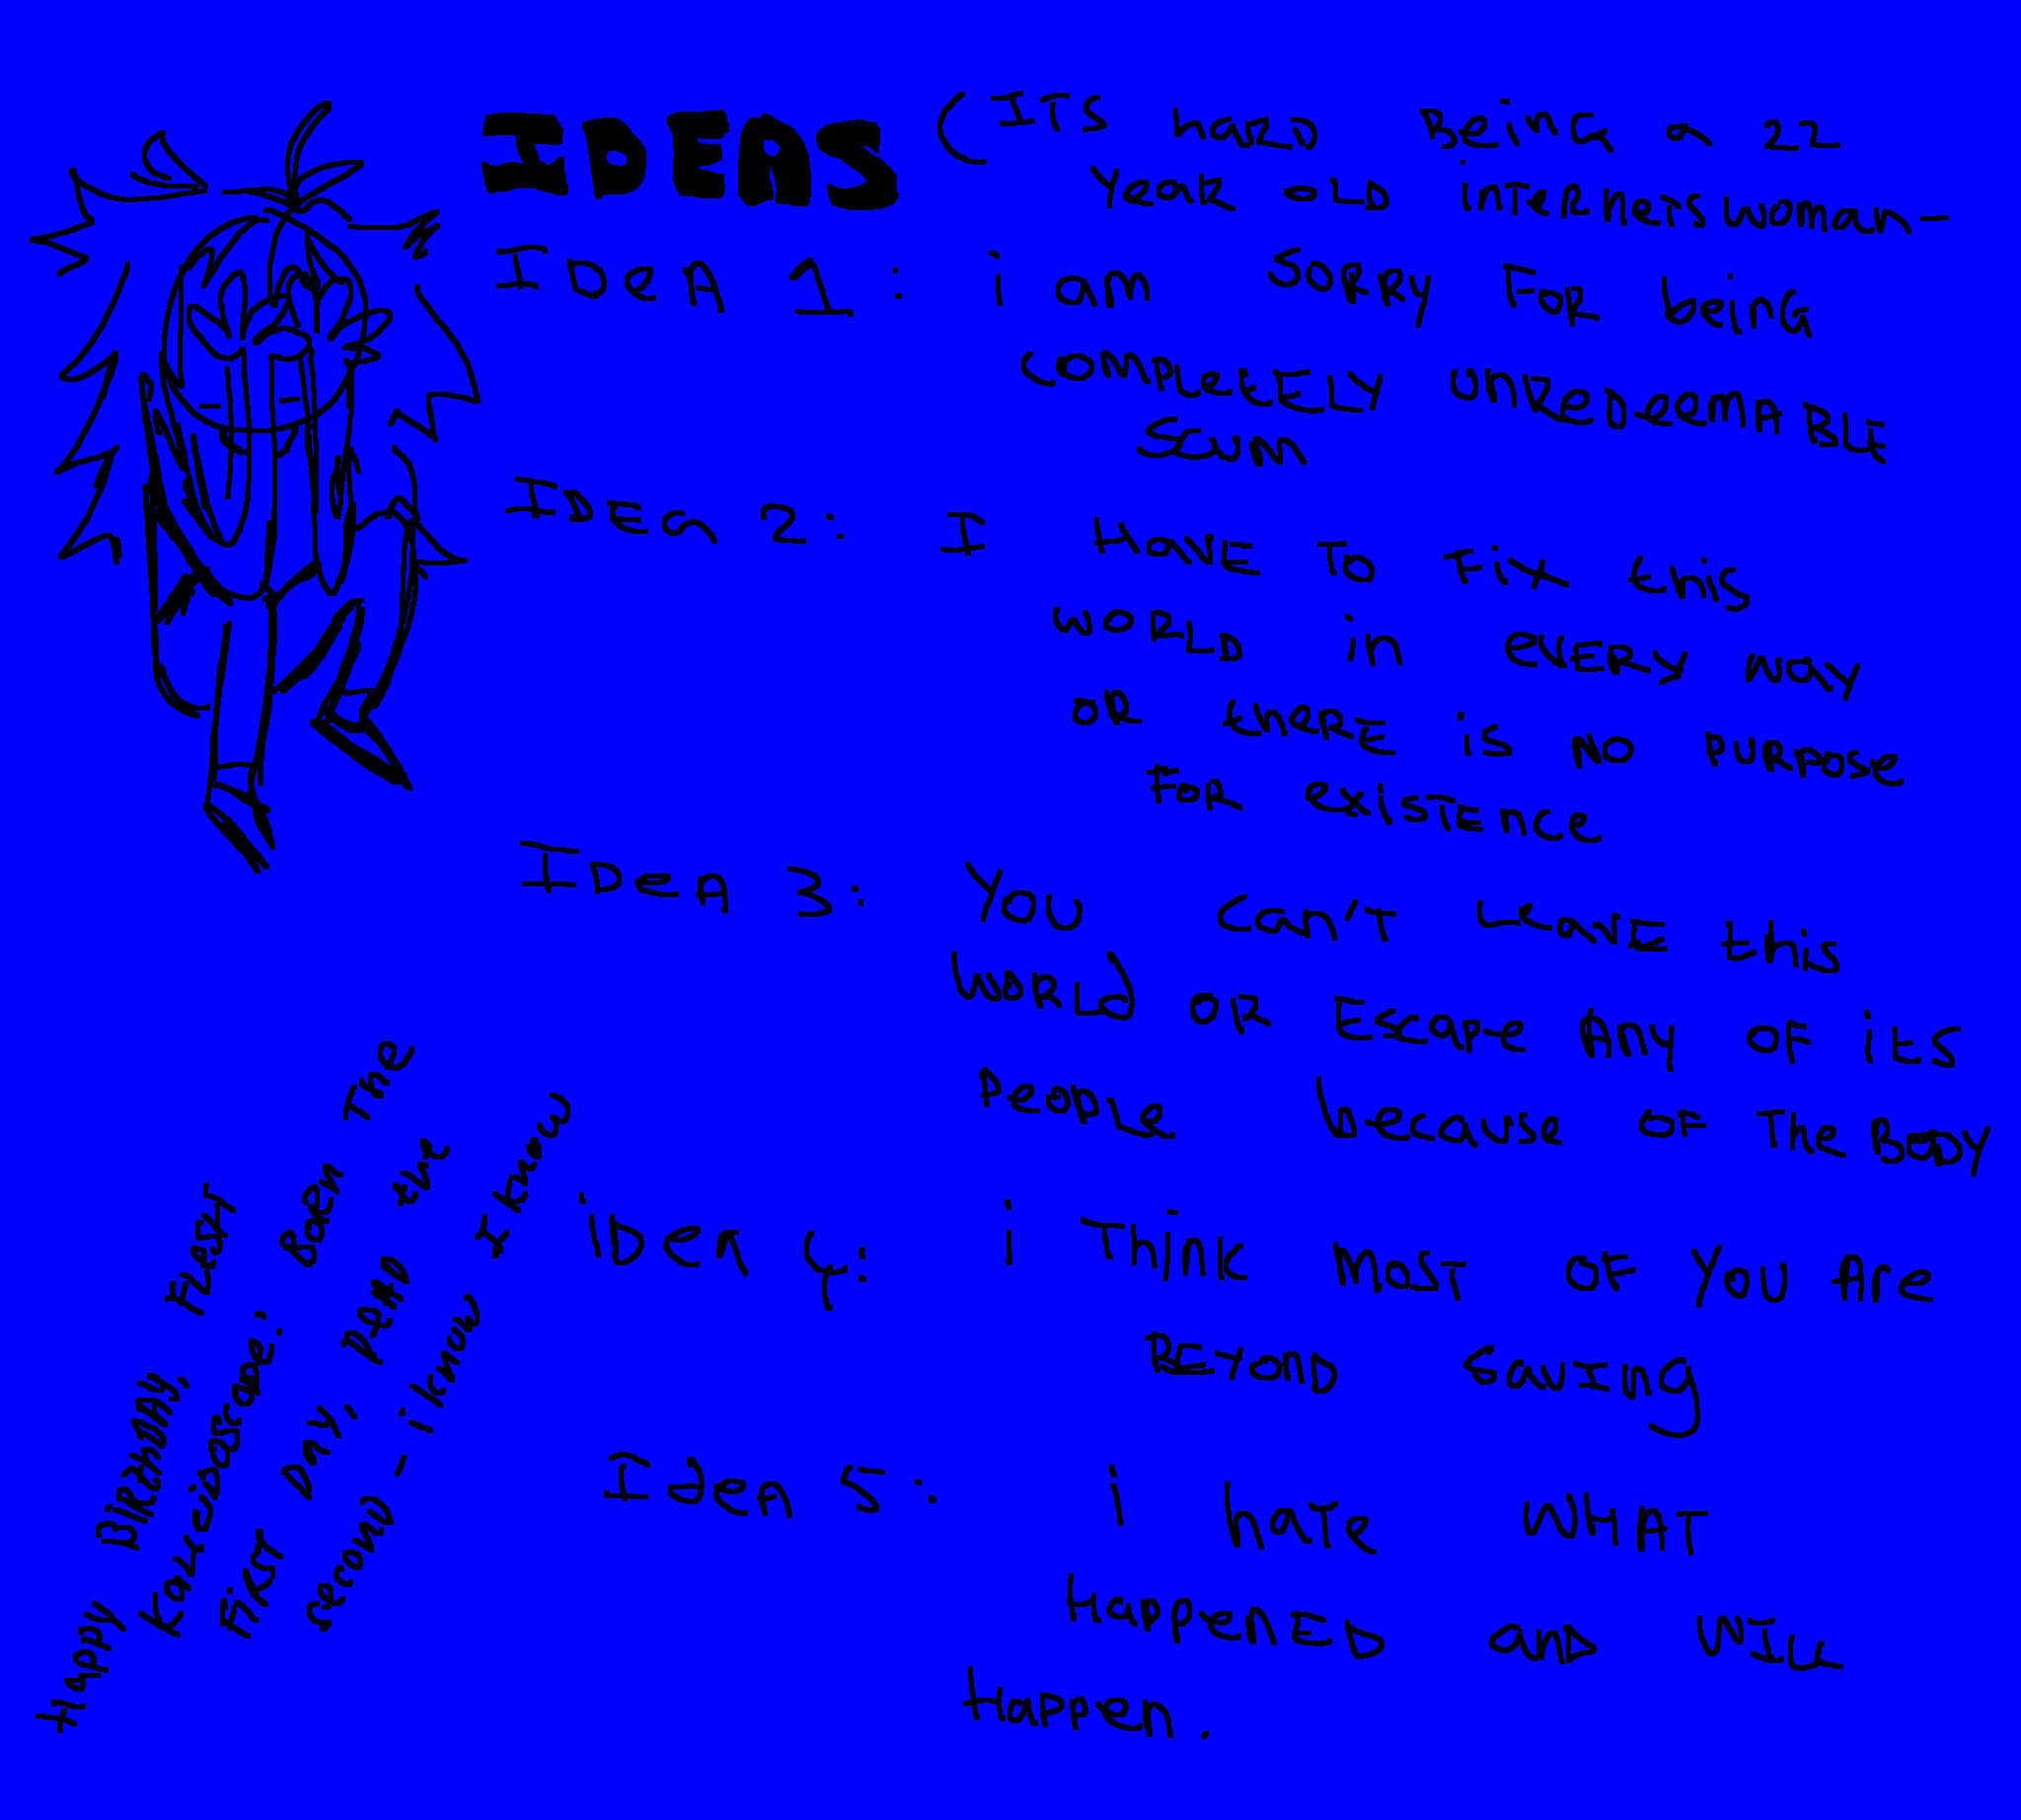 IDEAS (ITS haRD BeinG a 22
YeaR OLD inTeRneTswoman-
IDeA 1: i am SORRY FOR beinG
COMPLetELY unReDeemABLE
SCUM
IDEa 2: I HaVE TO Fix this
WORLD in eVERY way
OR theRE is NO PURPOSE
FOR existence
IDeA 3: You can't Leave this
WORLd OR Escape Any OF its
People because OF The BODY
iDea 4: i Think MOST OF You Are
BEYOND SavIng
IdeA 5: i haTe WHAT
HappenED anD WILL
Happen.
Happy BiRthDAY, FLesh
Kaleidoscope:
FiRst Day, Born The
second - i know DEAD the
I know